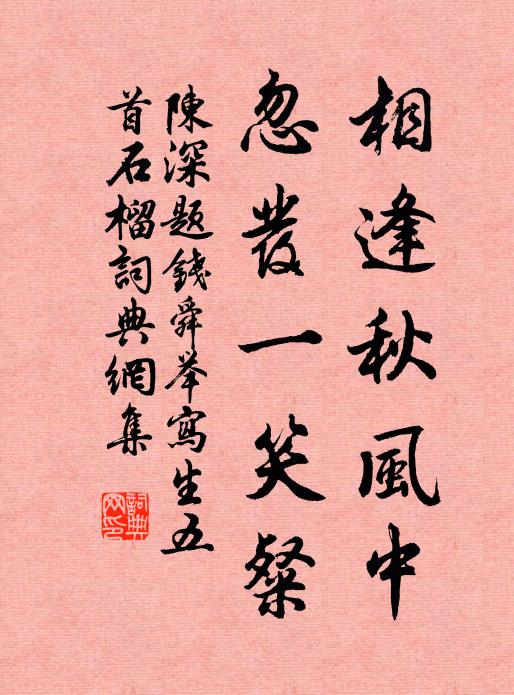 相逢秋風中
忽發一笑粲
陳深题錢舜举寫生五
首石榴詞典網集
詞典
网印